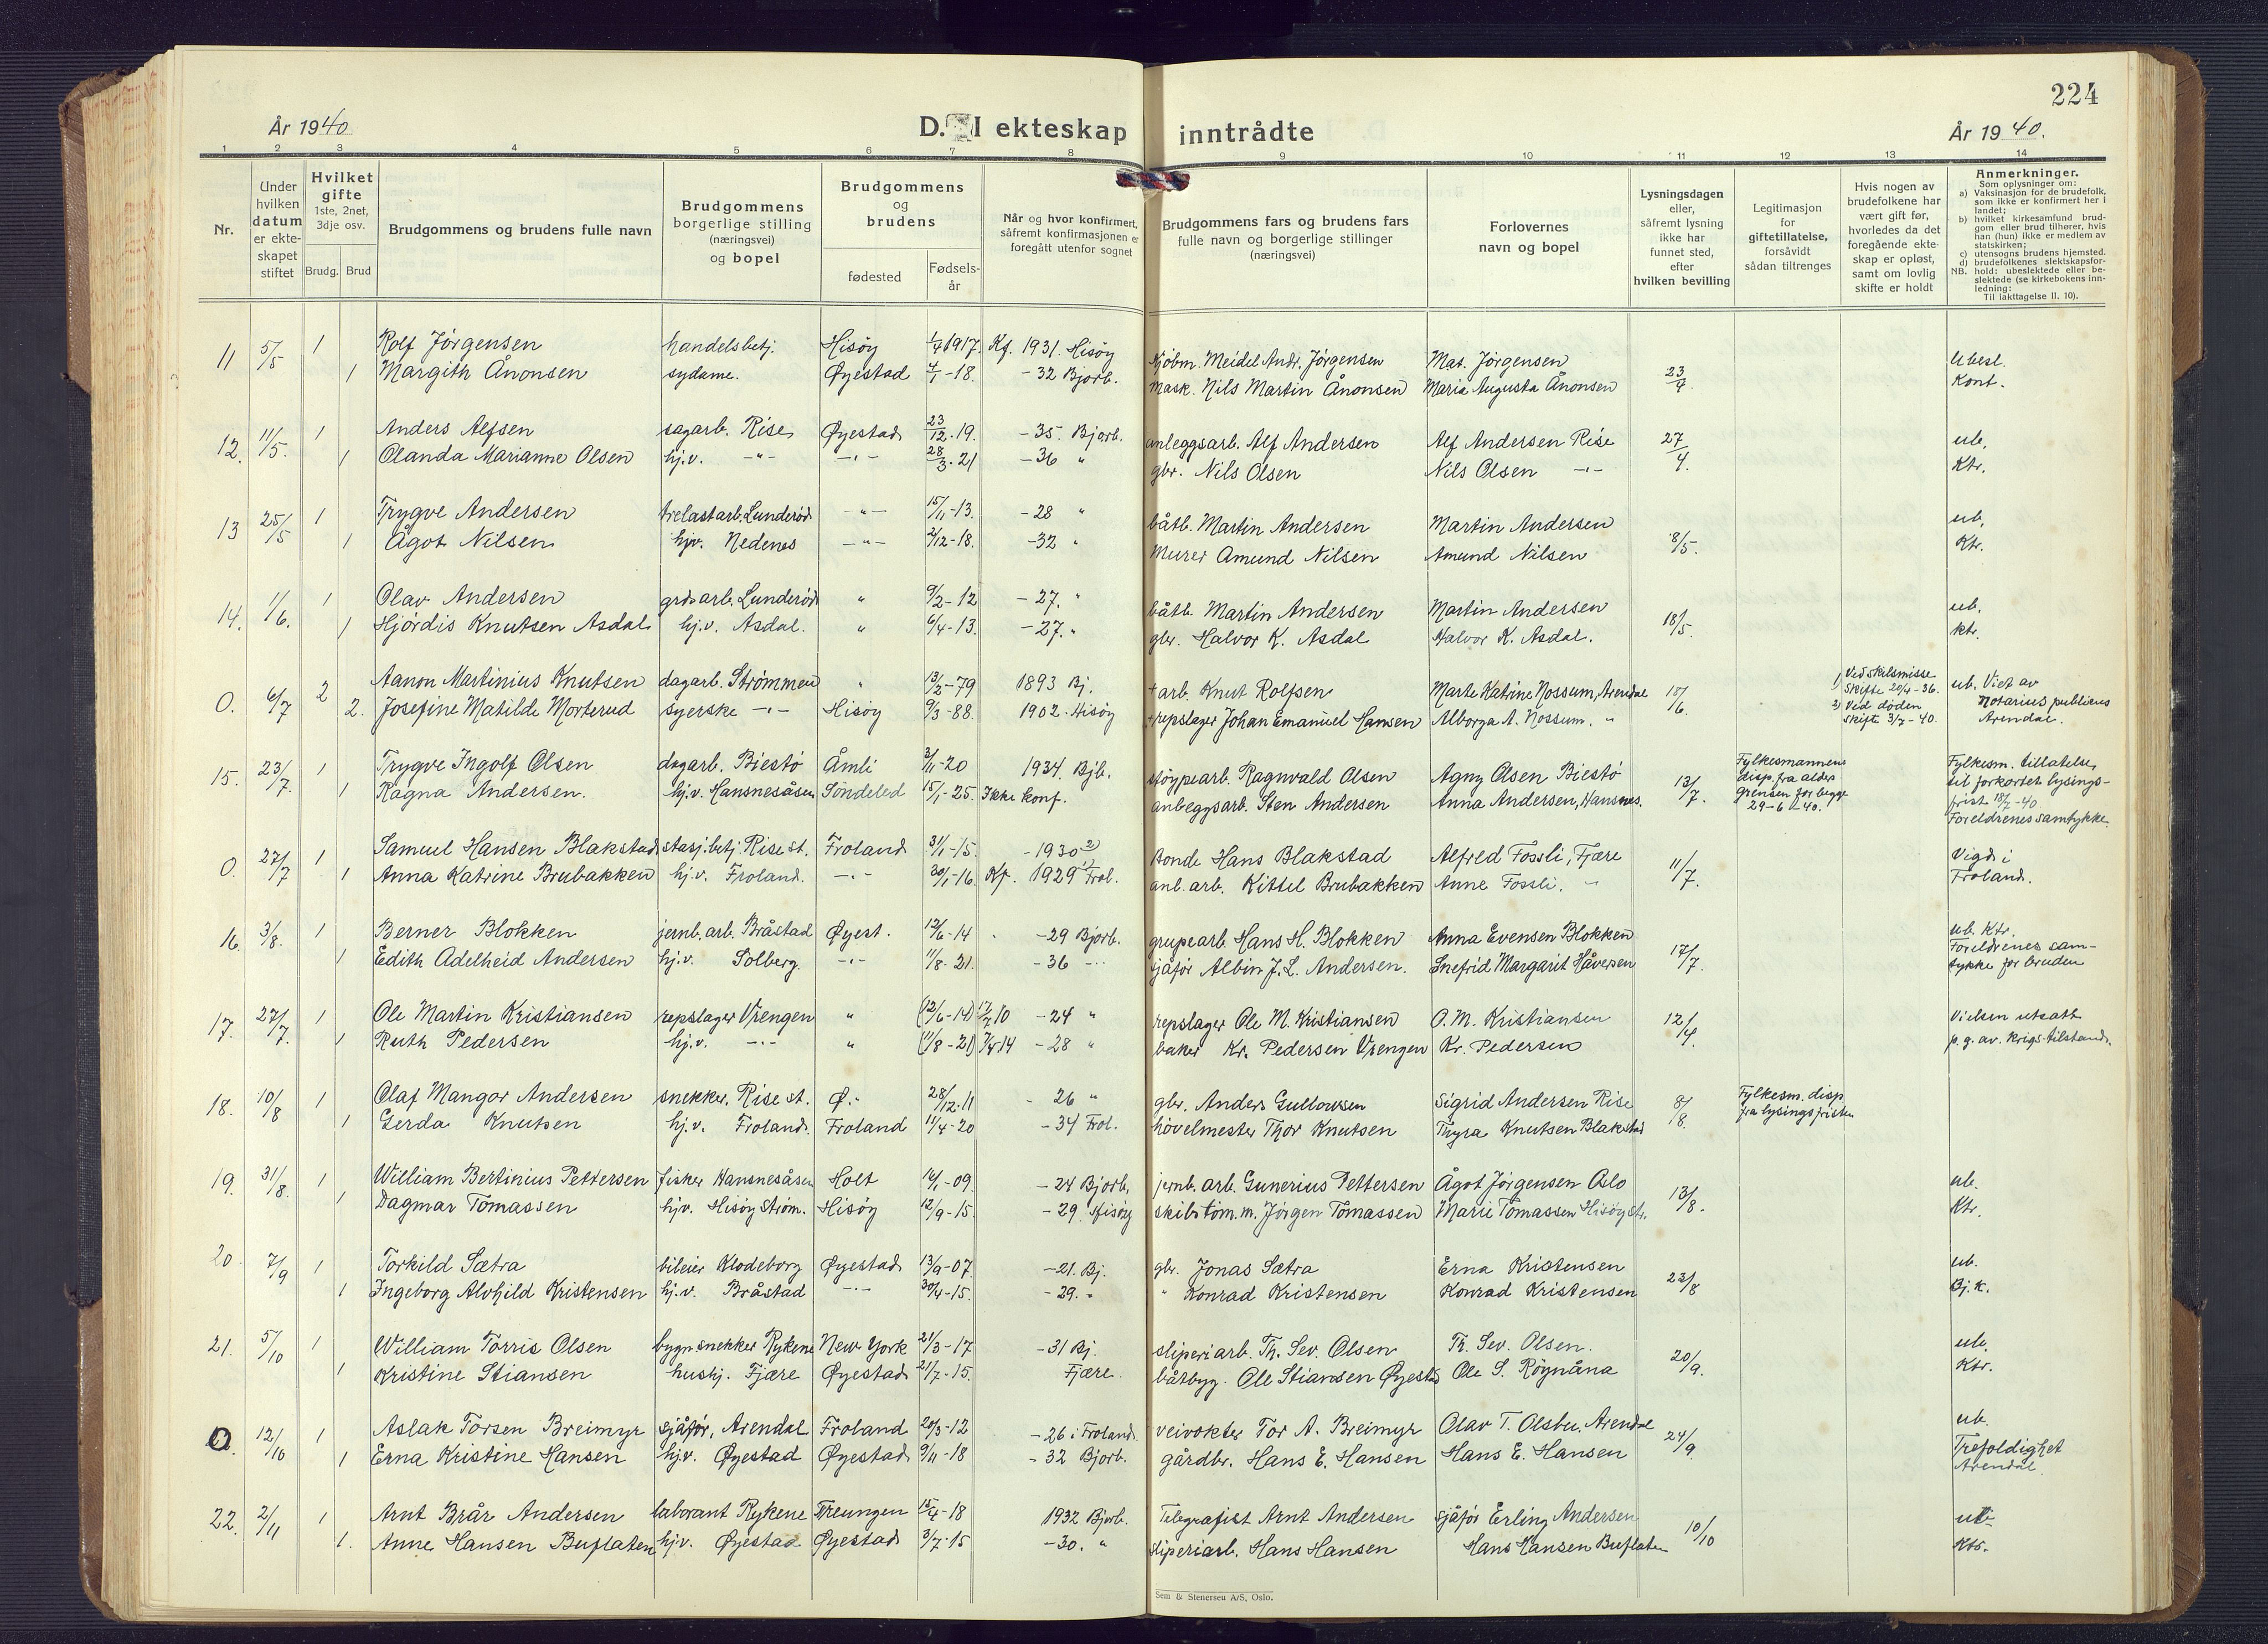 224
År 1940
D. I ekteskap inntrådte
År 1940.
1 2 3 4 5 6 7 8 9 10 11 12 13 14
Nr.
Under hvilken datum er ekteskapet stiftet
Hvilket gifte 1ste, 2net, 3dje osv.
Brudg. Brud
Brudgommens og brudens fulle navn
Brudgommens borgerlige stilling (næringsvei) og bopel
Brudgommens og brudens
fødested
Fødselsår
Når og hvor konfirmert, såfremt konfirmasjonen er foregått utenfor sognet
Brudgommens fars og brudens fars fulle navn og borgerlige stillinger (næringsvei)
Forlovernes navn og bopel
Lysningsdagen eller, såfremt lysning ikke har funnet sted, efter hvilken bevilling
Legitimasjon for giftetillatelse, forsåvidt sådan tiltrenges
Hvis nogen av brudefolkene har vært gift før, hvorledes da det foregående ekteskap er opløst, samt om lovlig skifte er holdt
Anmerkninger.
Som oplysninger om:
a) Vaksinasjon for de brudefolk, som ikke er konfirmert her i landet;
b) hvilket kirkesamfund brudgom eller brud tilhører, hvis han (hun) ikke er medlem av statskirken;
c) utensogns brudens hjemsted.
d) brudefolkenes slektskapsforhold: ubeslektede eller beslektede (se kirkebokens innledning:
NB. Til iakttagelse II. 10).
11 5/5 1 Rolf Jörgensen handelsbetj. Hisöy 1917. Kf. 1931. Hisöy Meidel Andr. Jörgensen Mat. Jörgensen 23/4 Ubesl.
1 Margith Ånonsen sydame. Øyestad 4/1-18. -32 Bjorb. mask. Nils Martin Ånonsen Maria Augusta Ånonsen Kont.
12. 11/5. 1 Anders Alfsen sagarb. Rise Øyestad 23/12.19. -35. Bjorb. anleggsarb. Alf Andersen Alf Andersen Rise 27/4. ub.
1 Olanda Marianne Olsen hj.v. -"- -"- 28/3.21 -36 " gbr. Nils Olsen Nils Olsen -"- Ktr.
13 25/5 1 Trygve Andersen trelastarb. Lunderöd -"- 15/11-13. -28 " båtb. Martin Andersen Martin Andersen 8/5. ub.
1 Ågot Nilsen hjv. Nedenes -"- 2/12-18. -32 " Murer Amund Nilsen Amund Nilsen Ktr.
14. 1/6. 1 Olav Andersen grdsarb. Lunderöd " 9/2-12 -27. " båtb. Martin Andersen Martin Andersen 18/5. ub.
1 Hjördis Knutsen Asdal hj.v. Asdal. " 6/4-13. -27. " gbr. Halvor K. Asdal Halvor K. Asdal. ktr.
0. 6/7 2 Aanon Martinius Knutsen dagarb. Strömmen " 13/2-79 1893 Bj. + arb. Knut Rolfsen Marte Katrine Nossum, Arendal 10/6. 1) Ved skilsmisse skifte 20/4-36. ub. Viet av
2. Josefine Matilde Morterud syerske -"- Hisöy 9/3-88. 1902. Hisöy + repslager Johan Emanuel Hansen Alborga A. Nossum. " 2) Ved döden skifte 3/7-40. Notarius publicus Arendal.
15. 23/7. 1 Trygve Ingolf Olsen dagarb. Biestö Åmli 3/11-20 1934. Bjb. stöypearb. Ragnvald Olsen Agny Olsen Biestö 13/7. Fylkesmannens disp. fra aldersgrensen for begge 29-6-40. Fylkesm. tillatelse til forkortet lysings-
1 Ragna Andersen. hj.v. Hansnesåsen Söndeled 15/1-25. Ikke konf. anleggsarb. Sten Andersen Anna Andersen, Hansnes. frist 18/7-40 Foreldrenes samtykke.
0. 27/7 1 Samuel Hansen Blakstad stasj.betj. Rise st. Froland 31/1-15. -1930 2) Bonde Hans Blakstad Alfred Fossli, Fjære 11/7. Vigd i
1 Anna Katrine Brubakken hj.v. Froland. -"- 30/1-16. Kf. 1929 1) Frol. anl. arb. Kittil Brubakken Anne Fossli. " Froland.
16. 3/8. 1 Berner Blokken jernb. arb. Bråstad Øyest. 12/6-14 -29 Bjorb. grupearb. Hans H. Blokken Anna Evensen Blokken 17/7. ub. Ktr. Foreldrenes sam-
1 Edith Adelheid Andersen hj.v. Solberg. -"- 11/8-21. -36 -"- sjåför Albin J. L. Andersen. Snefrid Margarit Håversen tykke for bruden
17. 27/7. 1 Ole Martin Kristiansen repslager Vrengen " (12/6-14) 17/7 10 -24 " repslager Ole M. Kristiansen O. M. Kristiansen 12/4. Vielsen utsatt
1 Ruth Pedersen hj.v. -"- " (11/8-21) 7/4 14 -28 " baker Kr. Pedersen Vrengen Kr. Pedersen p.g.av. Krigs-tilstand.
18. 10/8 1 Olaf Mangor Andersen snekker. Rise st. Ø.- 28/12.11 - 26 " gbr. Anders Gullowsen Sigrid Andersen Rise 8/8. Fylkesm. disp fra lysingsfristen
1 Gerda Knutsen hj.v. Froland. Froland 11/4-20 -34 Frol. hövelmester Thor Knutsen Thyra Knutsen Blakstad
19. 31/8. 1 William Bertinius Pettersen fisker Hansnesåsen Holt 14/1-09. -24 Bjorb. jernb. arb. Gunerius Pettersen Ågot Jörgensen Oslo 13/8. ub.
1 Dagmar Tomassen hjv. Hisöy Ström. Hisöy 12/9-15. -29. Hisöy skibstöm.m. Jörgen Tomassen Marie Tomassen Hisöystr. Ktr.
20. 7/9 1 Torkild Sætra bileier Klodeborg Øyestad 13/9-07. -21. Bj. gbr. Jonas Sætra Erna Kristensen 23/8 ub.
1 Ingeborg Alvhild Kristensen hj.v. Bråstad -"- 30/4-15. -29. " " Konrad Kristensen Konrad Kristensen Bj.k.
21. 5/10 1 William Torris Olsen bygn.snekker Rykene New York 21/3-17 -31 Bj. sliperiarb. Th. Sev. Olsen Th. Sev. Olsen. 20/9. ub.
1 Kristine Stiansen hushj. Fjære Øyestad 21/7-15. Fjære. båtbyg. Ole Stiansen Øyestad Ole S. Röynåna Ktr.
0. 12/10 1 Aslak Torsen Breimyr sjåför, Arendal Froland 20/3-12 -26 i Froland. veivokter Tor A. Breimyr Olav T. Olsbu, Arendal 24/9. ub. Trefoldighet
1 Erna Kristine Hansen hj.v. Øyestad Øyestad 9/11-18 -32 Bjorb. gårdbr. Hans E. Hansen Hans E. Hansen Arendal
22. 2/11 1 Arnt Brår Andersen laborant Rykene Treungen 15/4-18 1932 Bjorb. Telegrafist Arnt Andersen sjåför Erling Andersen 10/10 ub
1. Anne Hansen Buflaten hj.v. Øyestad Øyestad 3/7-15 -30. " sliperiarb. Hans Hansen Hans Hansen Buflaten Ktr.
Sem & Stenersen A/S, Oslo.